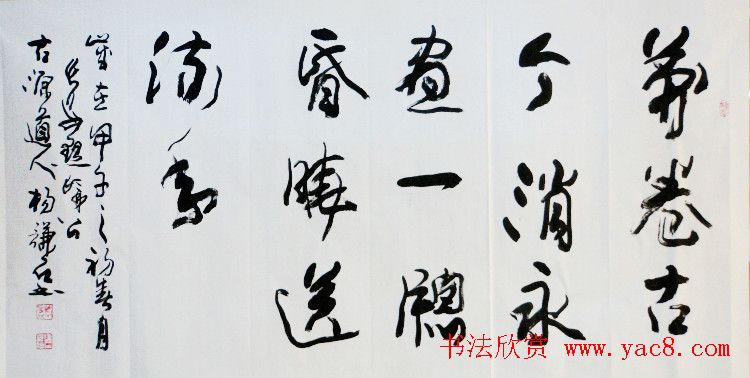 萬卷古
今消永
晝一牕
昏曉送
流年
歲在甲午之初春月
古源道人楊謙
书法欣赏 www.yac8.com